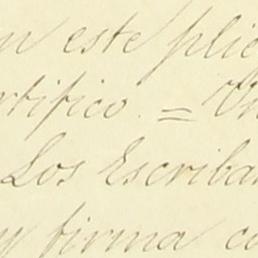 n este plie
rtifico = Un
Los Escriban
y firma co